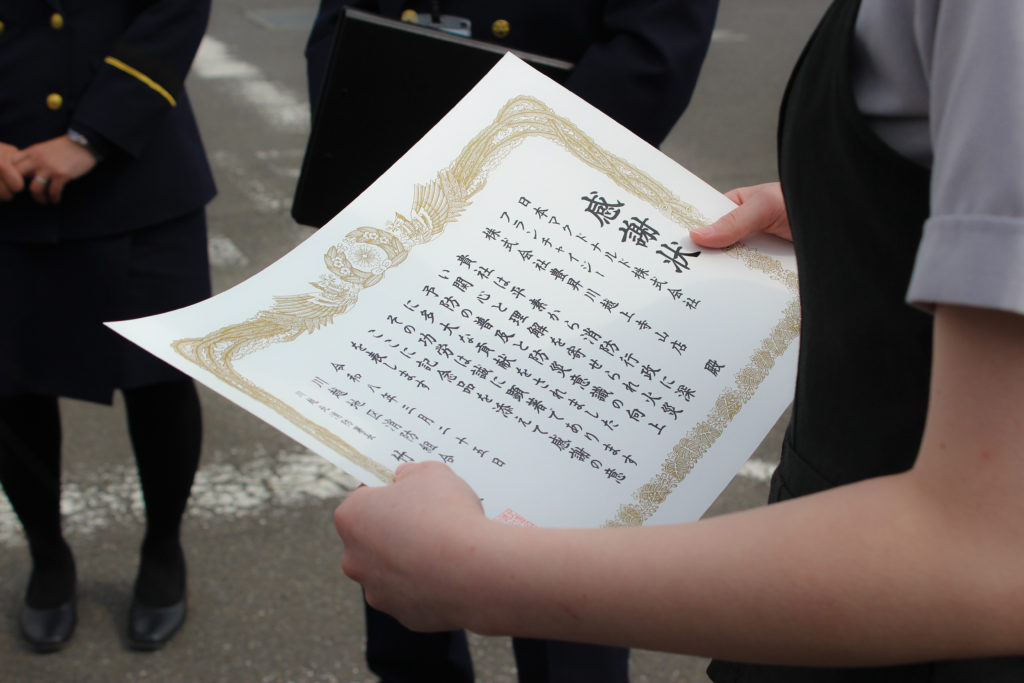 感謝状
日本マクドナルド株式会社
フランチャイジー
株式会社豊昇 川越上寺山店 殿
貴社は平素から消防行政に深
い関心と理解を寄せられ火災
予防の普及と防災意識の向上
に多大な貢献をされました
その功労は誠に顕著であります
ここに記念品を添えて感謝の意
を表します
令和八年三月二十五日
川越地区消防組合
川越北消防署長 竹